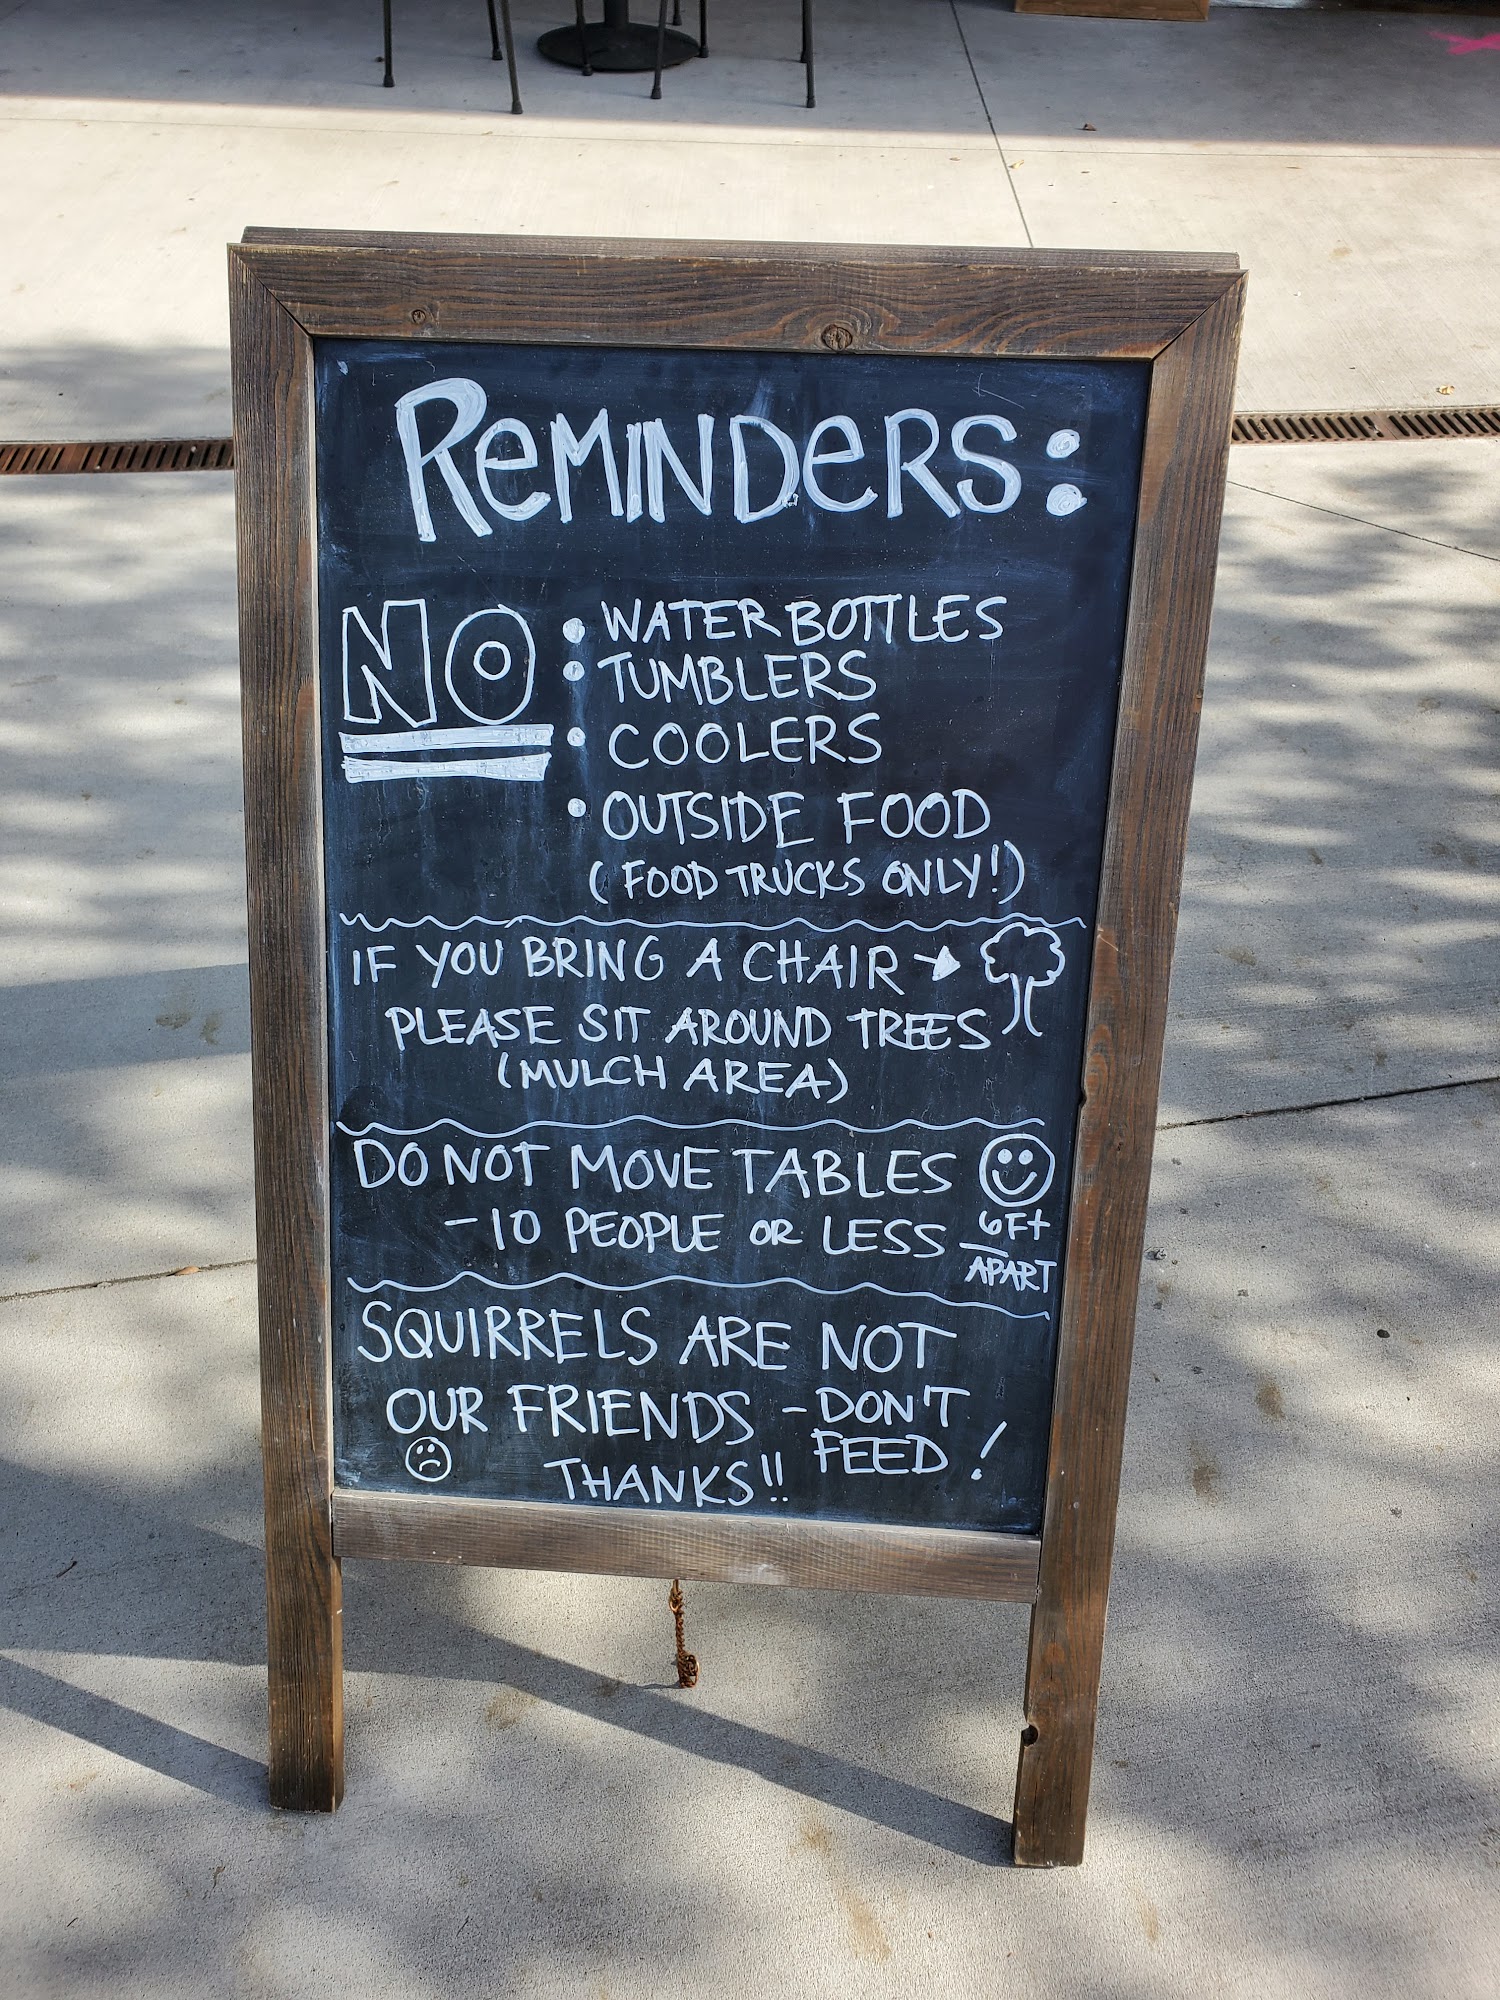 ReMINDeRS:
NO
• WATER BOTTLES
• TUMBLERS
• COOLERS
• OUTSIDE FOOD
(FOOD TRUCKS ONLY!)
IF YOU BRING A CHAIR →
PLEASE SIT AROUND TREES
(MULCH AREA)
DO NOT MOVE TABLES
- 10 PEOPLE OR LESS
6Ft
APART
SQUIRRELS ARE NOT
OUR FRIENDS - DON'T
FEED!
THANKS!!